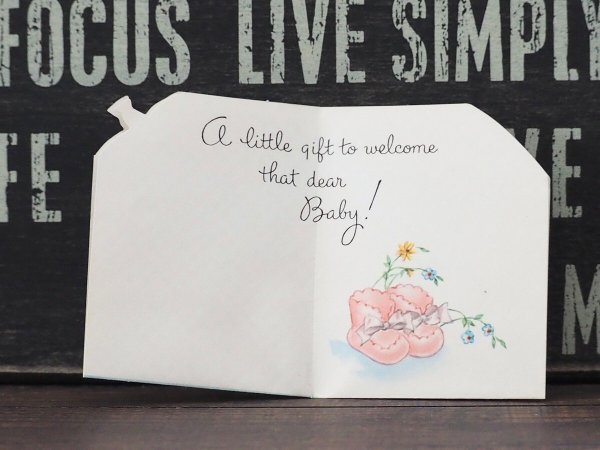 FOCUS LIVE SIMPLY
A little gift to welcome
that dear
Baby!